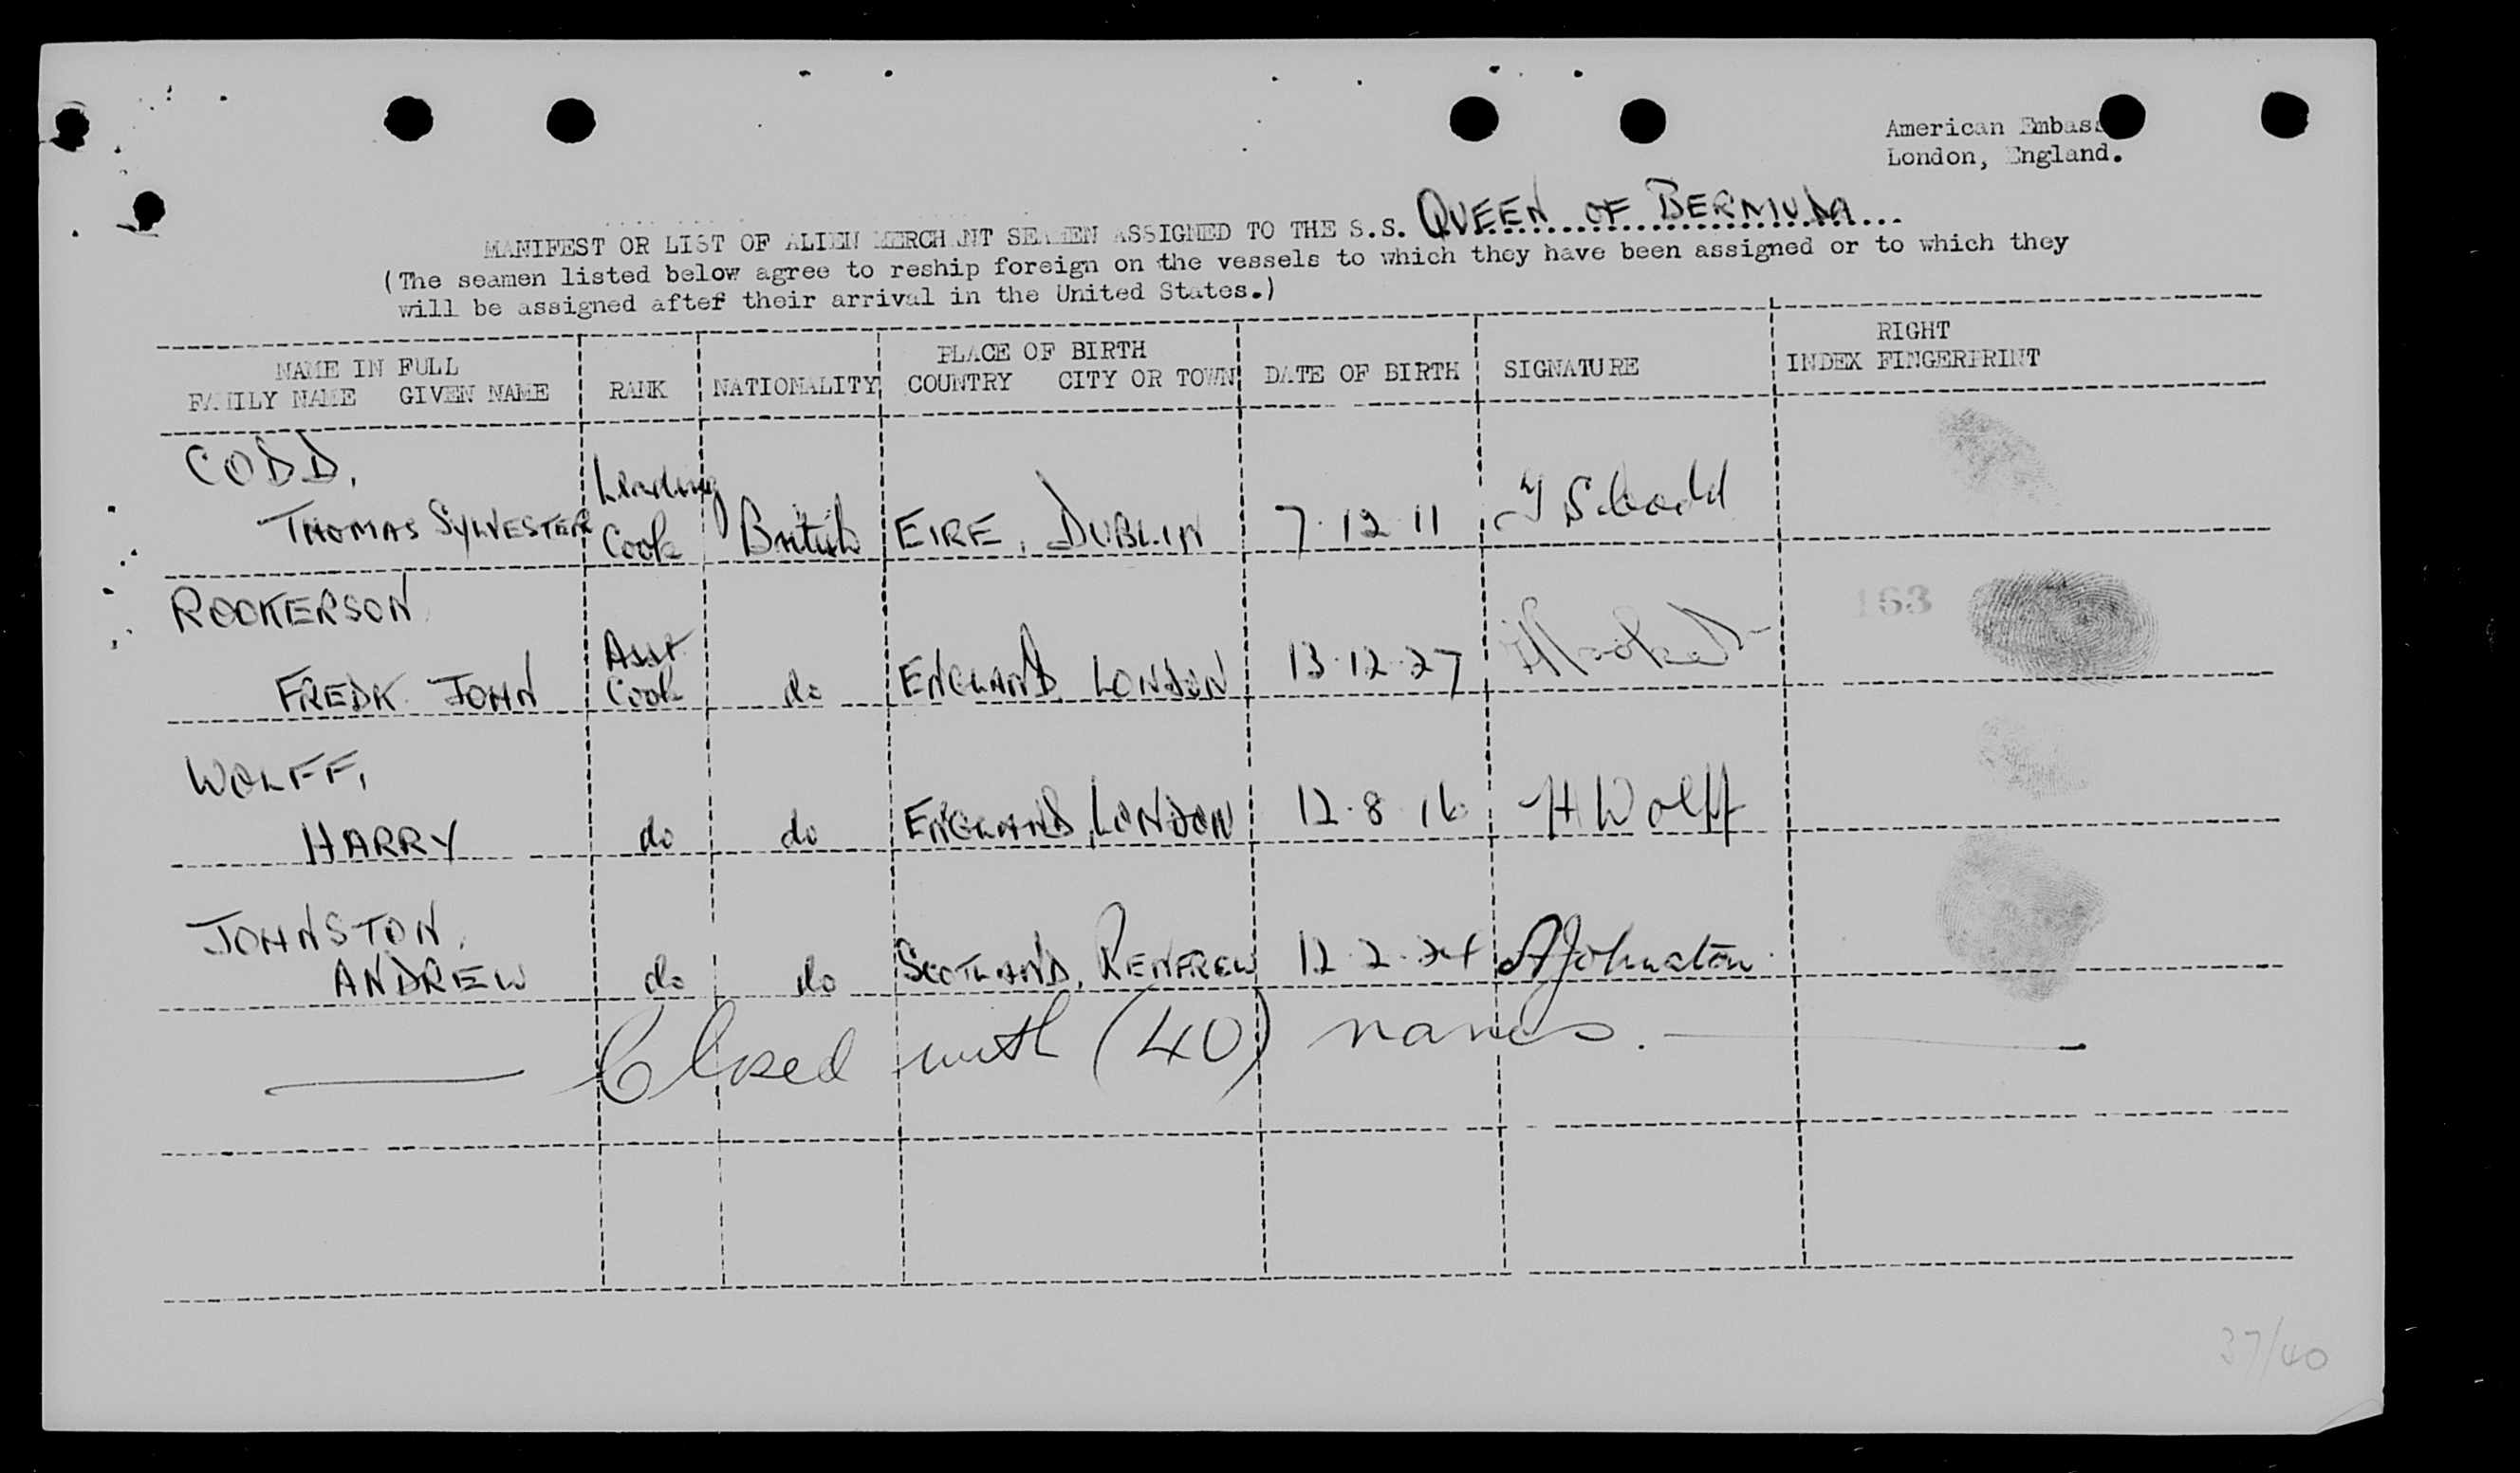 American Embass
London, England.
MANIFEST OR LIST OF ALIEN MERCHANT SEAMEN ASSIGNED TO THE S.S. QUEEN OF BERMUDA
(The seamen listed below agree to reship foreign on the vessels to which they have been assigned or to which they
will be assigned after their arrival in the United States.)
NAME IN FULL
FAMILY NAME GIVEN NAME
RANK
NATIONALITY
PLACE OF BIRTH
COUNTRY CITY OR TOWN
DATE OF BIRTH
SIGNATURE
RIGHT
INDEX FINGERPRINT
CODD,
THOMAS SYLVESTER
Leading
Cook
British
EIRE, DUBLIN
7.12.11
T S Codd
ROOKERSON
FREDK. JOHN
Asst
Cook
do
ENGLAND LONDON
13.12.27
163
WOLFF,
HARRY
do
do
ENGLAND, LONDON
12.8.16
H Wolff
JOHNSTON,
ANDREW
do
do
SCOTLAND, RENFREW
12.2.24
A Johnston
Closed with (40) names.
37/40